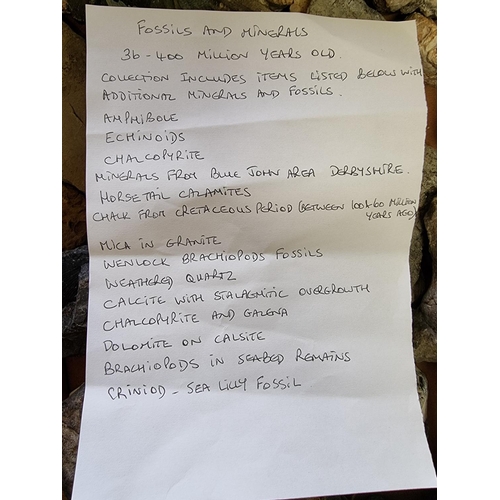 FOSSILS AND MINERALS
36-400 MILLION YEARS OLD.
COLLECTION INCLUDES ITEMS LISTED BELOW WITH
ADDITIONAL MINERALS AND FOSSILS.
AMPHIBOLE
ECHINOIDS
CHALCOPYRITE
MINERALS FROM BLUE JOHN AREA DERBYSHIRE.
HORSETAIL CALAMITES
CHALK FROM CRETACEOUS PERIOD (BETWEEN 100&60 MILLION
YEARS AGO)
MICA IN GRANITE
WENLOCK BRACHIOPODS FOSSILS
WEATHERED QUARTZ
CALCITE WITH STALAGMITIC OVERGROWTH
CHALCOPYRITE AND GALENA
DOLOMITE ON CALSITE
BRACHIOPODS IN SEABED REMAINS
CRINIOD - SEA LILLY FOSSIL